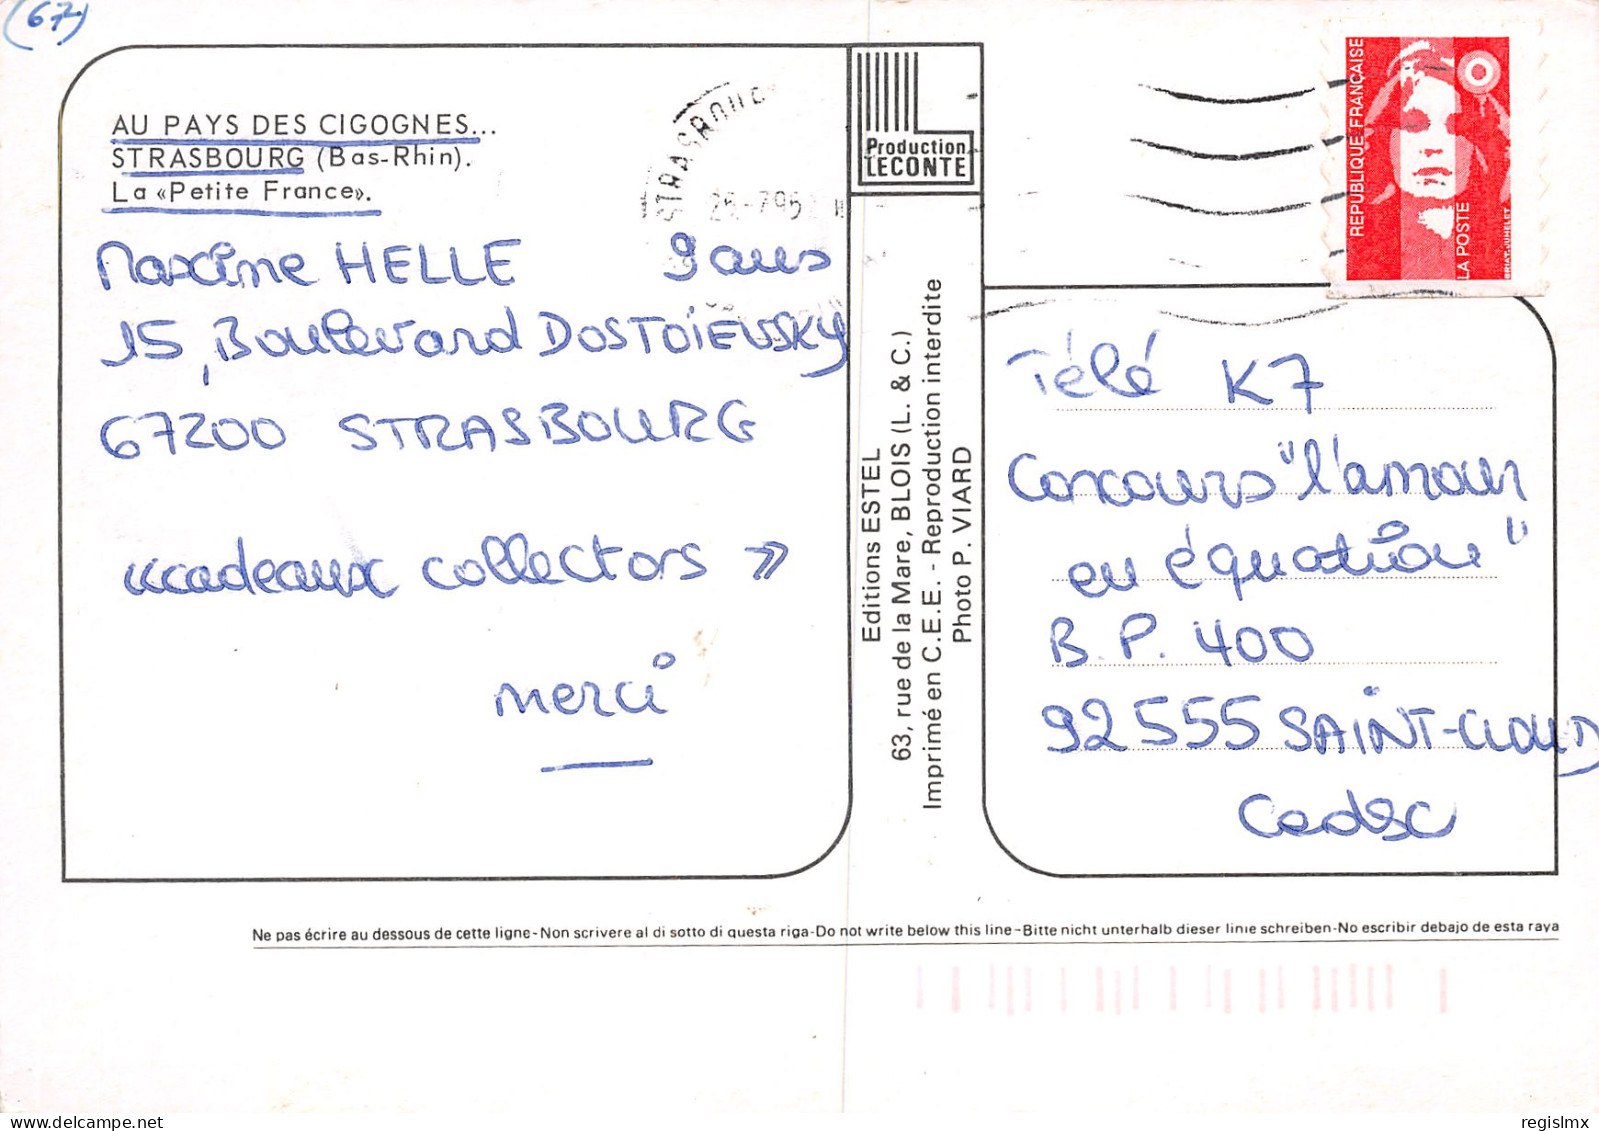 (67)
AU PAYS DES CIGOGNES...
STRASBOURG (Bas-Rhin).
La «Petite France».
Maxime HELLE 9 ans
15, Boulevard DOSTOÏEVSKY
67200 STRASBOURG
«cadeaux collectors»
merci
STRASBOURG
25-795
Production
LECONTE
Editions ESTEL
63, rue de la Mare, BLOIS (L. & C.)
Imprimé en C.E.E. - Reproduction interdite
Photo P. VIARD
REPUBLIQUE FRANÇAISE
LA POSTE
BRIAT-JUMELET
Télé K7
Concours "l'amour
en équation"
B.P. 400
92555 SAINT-CLOUD
Cedex
Ne pas écrire au dessous de cette ligne-Non scrivere al di sotto di questa riga-Do not write below this line-Bitte nicht unterhalb dieser linie schreiben-No escribir debajo de esta raya
regislmx